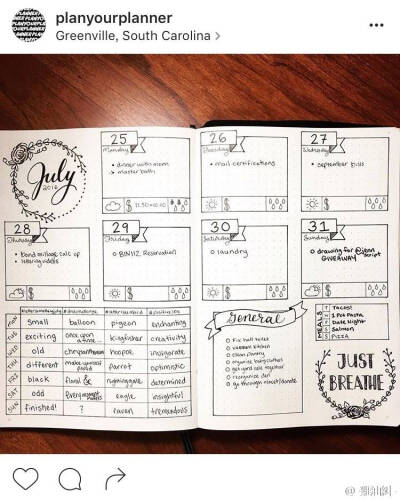 planyourplanner
Greenville, South Carolina >
July
2016
25
Monday
dinner with mom
master bath
26
Tuesday
mail certifications
27
Wednesday
September bills
28
Thursday
29
Friday
Reservation
30
Saturday
laundry
31
Sunday
drawing for @jenn
script
GIVEAWAY
MON
small
balloon
pigeon
enchanting
TUE
exciting
once upon
a time
kingfisher
creativity
WED
old
hoopoe
invigorate
THU
different
parrot
optimistic
FRI
black
floral &
nightingale
determined
SAT
odd
eagle
insightful
SUN
finished!
?
raven
tremendous
General
Fix hall toilet
vacuum kitchen
clean pantry
organize baby clothes
get yard sale together
reorganize den
go through movies/donate
MEALS
Tacos!
1 Pot Pasta
Date Night
Salmon
Pizza
JUST
BREATHE